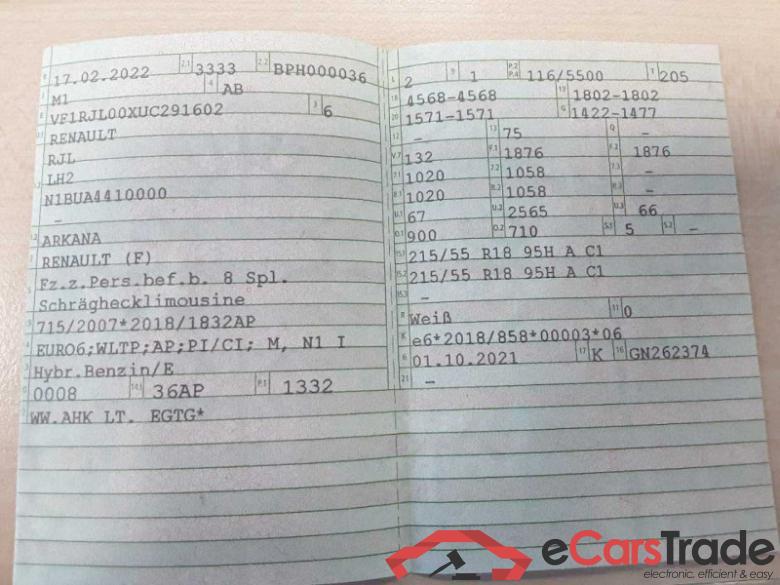 17.02.2022 2.1 3333 2.2 BPH000036
J M1 4 AB
E VF1RJL00XUC291602 3 6
RENAULT
RJL
LH2
N1BUA4410000
–
ARKANA
RENAULT (F)
Fz.z.Pers.bef.b. 8 Spl.
Schräghecklimousine
715/2007*2018/1832AP
EURO6;WLTP;AP;PI/CI; M, N1 I
Hybr.Benzin/E
0008 14.1 36AP P.1 1332
WW.AHK LT. EGTG*
L 2 9 1 P.2 P.4 116/5500 T 205
18 4568-4568 19 1802-1802
20 1571-1571 G 1422-1477
12 – 13 75 Q –
V.7 132 F.1 1876 F.2 1876
7.1 1020 7.2 1058 7.3 –
8.1 1020 8.2 1058 8.3 –
U.1 67 U.2 2565 U.3 66
O.1 900 O.2 710 S.1 5 S.2 –
15.1 215/55 R18 95H A C1
15.2 215/55 R18 95H A C1
15.3 –
R Weiß 11 0
K e6*2018/858*00003*06
6 01.10.2021 17 K 16 GN262374
21 –
eCarsTrade
electronic, efficient & easy